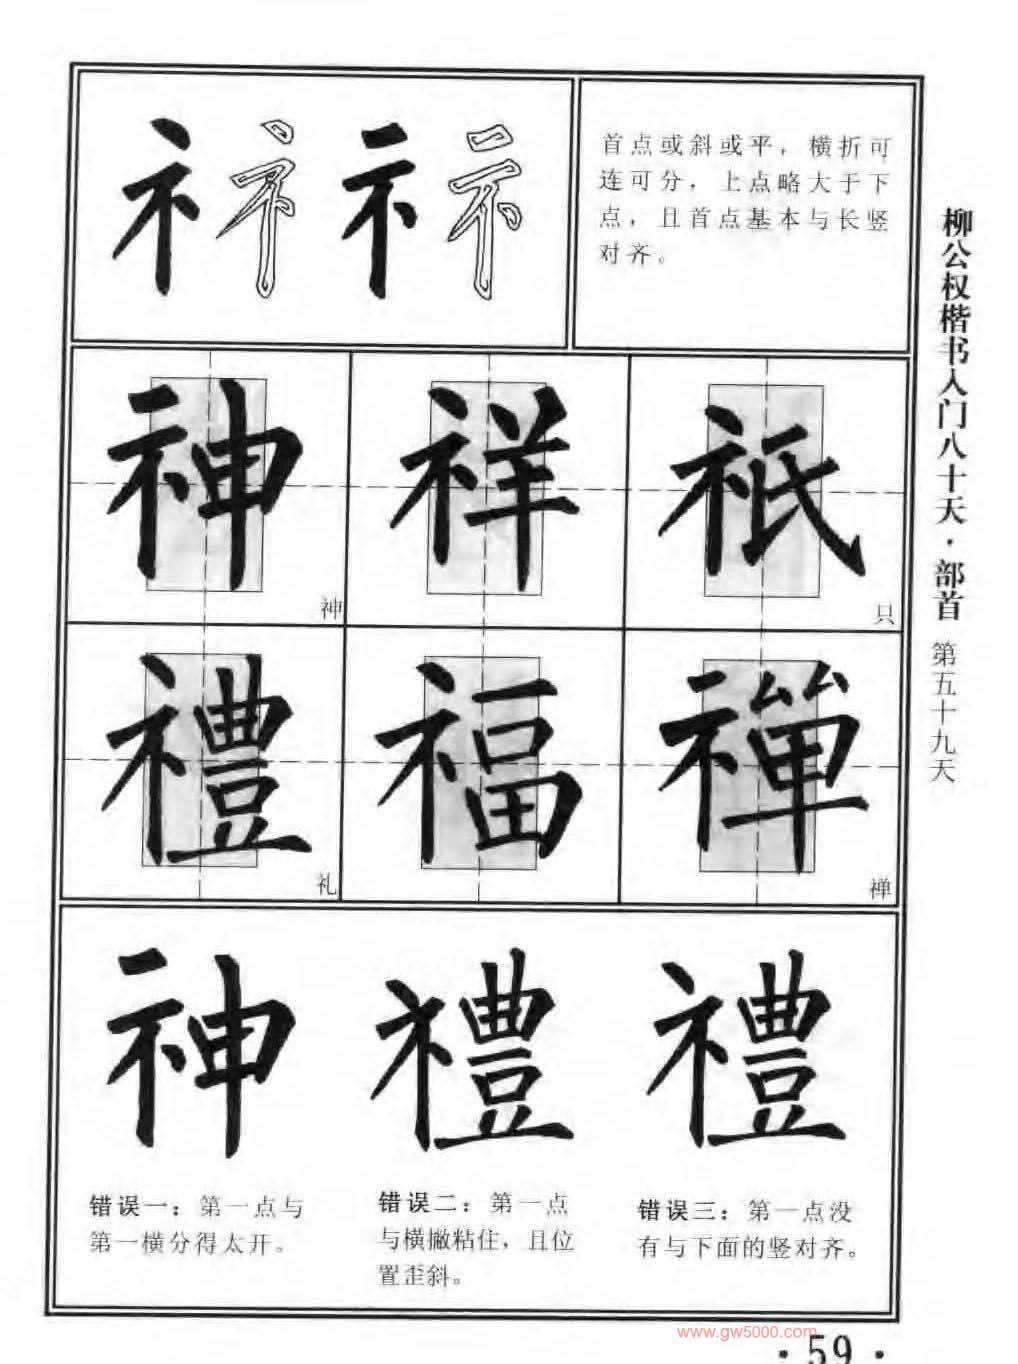 礻 礻 礻 礻
首点或斜或平，横折可
连可分，上点略大于下
点，且首点基本与长竖
对齐。
神 祥 祇
神 只
禮 福 禪
礼 禅
神 禮 禮
错误一：第一点与
第一横分得太开。
错误二：第一点
与横撇粘住，且位
置歪斜。
错误三：第一点没
有与下面的竖对齐。
柳公权楷书入门八十天·部首
第五十九天
www.gw5000.com
·59·